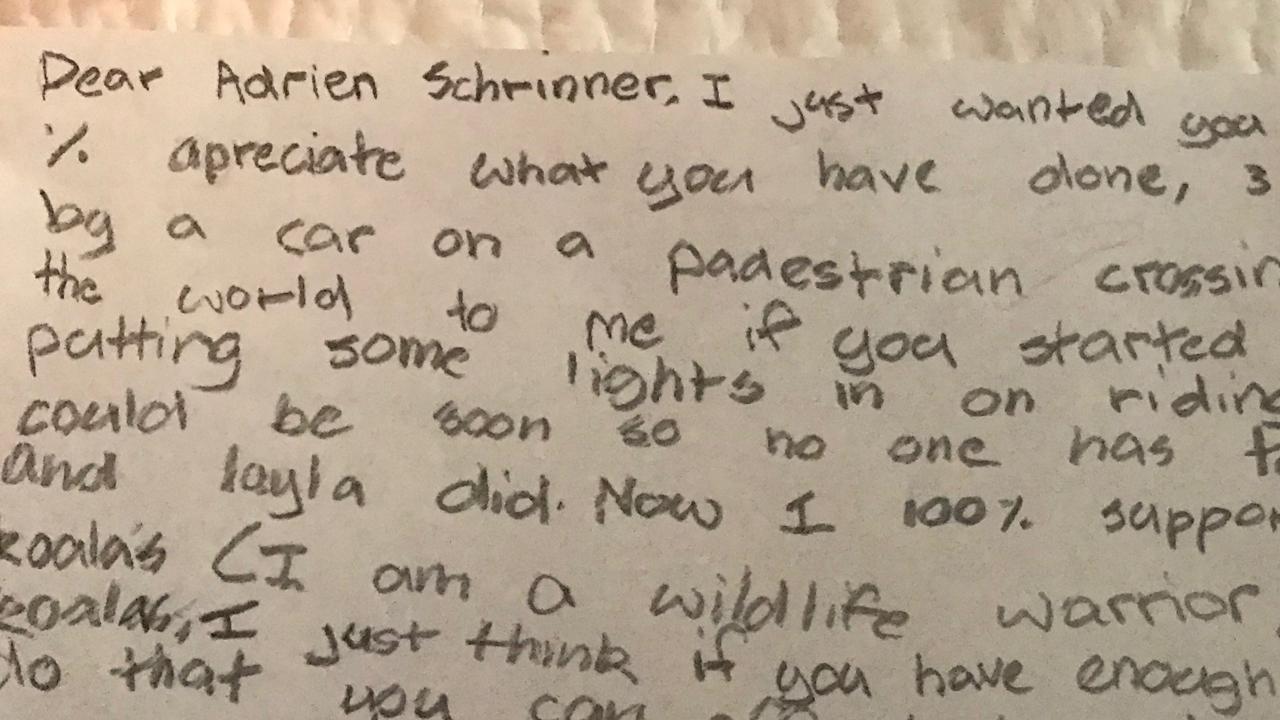 Dear Adrien Schrinner, I just wanted you
% apreciate what you have done, 3
by a car on a padestrian crossin
the world to me if you started
putting some lights in on riding
could be soon so no one has t
and layla did. Now I 100% suppor
koala's (I am a wildlife warrior
koalas, I just think if you have enough
do that you can